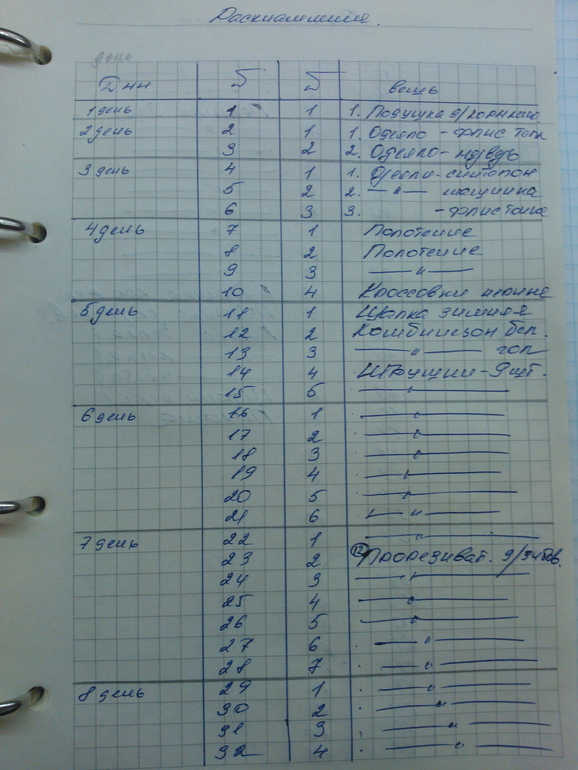 Расхламление.
Дни Б Б вещь
1 день 1 1 1. Подушка д/кормления
2 день 2 1 1. Одеяло - флис гол
3 2 2. Одеяло -
3 день 4 1 1. Одеяло - синтепон
5 2 2. — " —
6 3 3. - флис
4 день 7 1 Полотение
8 2 Полотение
9 3 — " —
10 4 Кроссовки
5 день 11 1 Шапка зимняя
12 2 Комбинезон бел.
13 3 — " — гол
14 4 - 9 шт.
15 5 — " —
6 день 16 1 — " —
17 2 — " —
18 3 — " —
19 4 — " —
20 5 — " —
21 6 — " —
7 день 22 1 — " —
23 2 (12) Прорезиват. д/зубов.
24 3 — " —
25 4 — " —
26 5 — " —
27 6 — " —
28 7 — " —
8 день 29 1 — " —
30 2 — " —
31 3 — " —
32 4 — " —